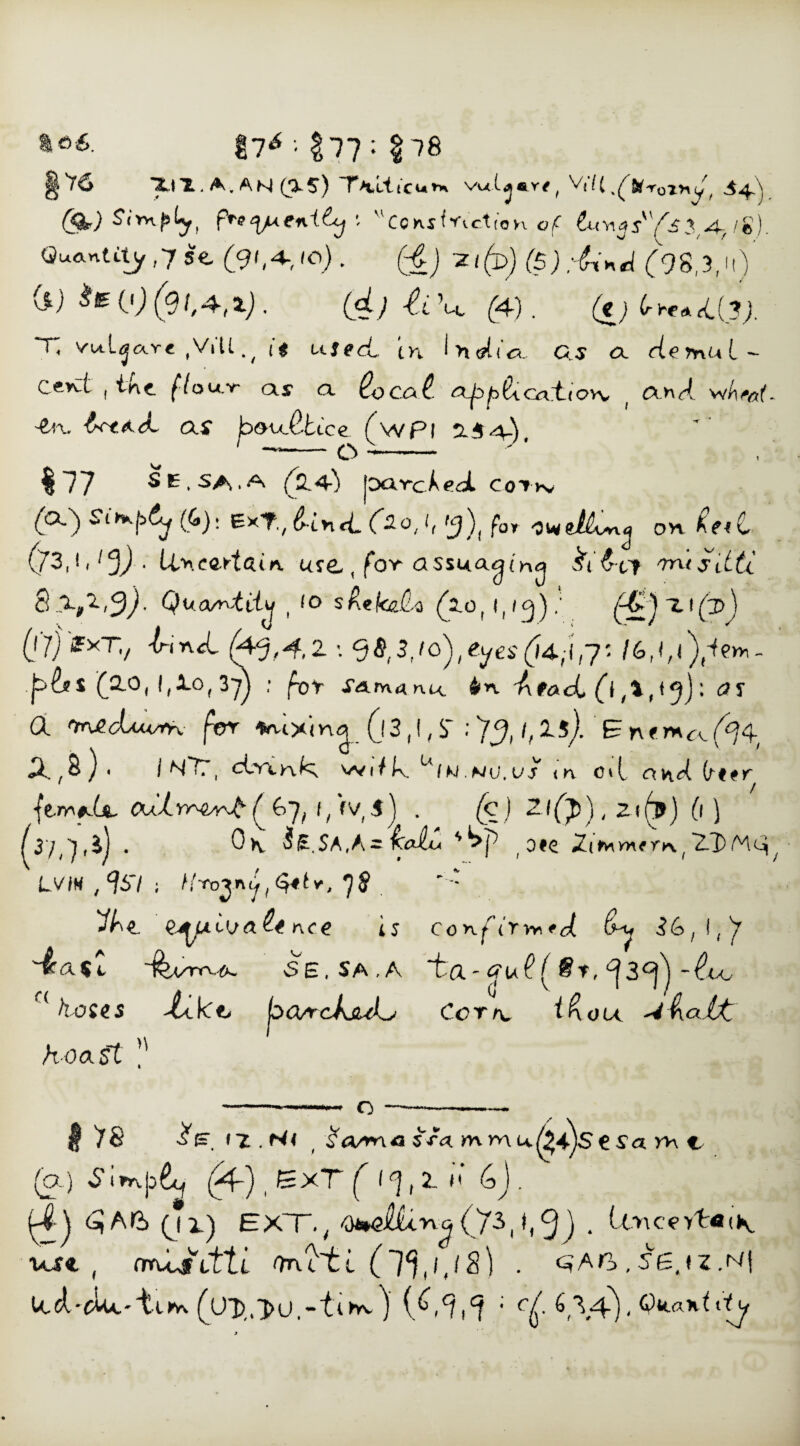 106. §76 : §77 : §78
§76 ZIZ.A.AN (25) Triticum vulgare, Vill.(Hrozný, 54).
(a) Simply, frequently : "constriction of lungs" (53,4,18).
Quantity, 7 še (91,4,10). (b) ZI(D) (5): bind (98,3,11)
(c) ŠE (1) (91,4,2). (d) li'u (4). (e) bread (3).
T. vulgare, Vill., is used in India as a demul-
cent, the flour as a local application, and wheat-
en bread as poultice (WPI 254).
§77 ŠE.SA.A (24) parched corn
(a) Simply (6): EXT., bind (20,1,19), for swelling on heel
(73,1,19). Uncertain use, for assuaging šibit mišitti
82,2,9). Quantity, 10 shekels (20,1,19). (b) ZI(D)
(17) EXT., bind (49,4,2 : 98,3,10), eyes (14,1,7: 16,1,1), tem-
ples (20,1,20,37) : for samanu in head (1,2,19): as
a medium for mixing (13,1,5 : 79,1,25). Enema (94,
2,8). INT., drink with UIN.NU.UŠ in oil and beer,
female ailment (67,1,IV,5). (c) ZI(D), ZI(D) (1)
(37,7,3). On ŠE.SA.A = kalu, see Zimmern, ZDMG,
LVIII, 951 ; Hrozný, Getr, 78
The equivalence is confirmed by 36,1,7
ŠE.SA.A
"hoses like parched corn thou shalt
hoast"
§78 ŠE.IZ.NI, šamaššammu (24) Sesame
(a) Simply (4), EXT (19,2 ii 6).
(b) GAB (12) EXT., swelling (73,1,9). Uncertain
use, mišitti (79,1,18). GAB.ŠE.IZ.NI
ud-du-tim (UD.DU.-tim) (6,9,9 : cf. 6,3,4). Quantity